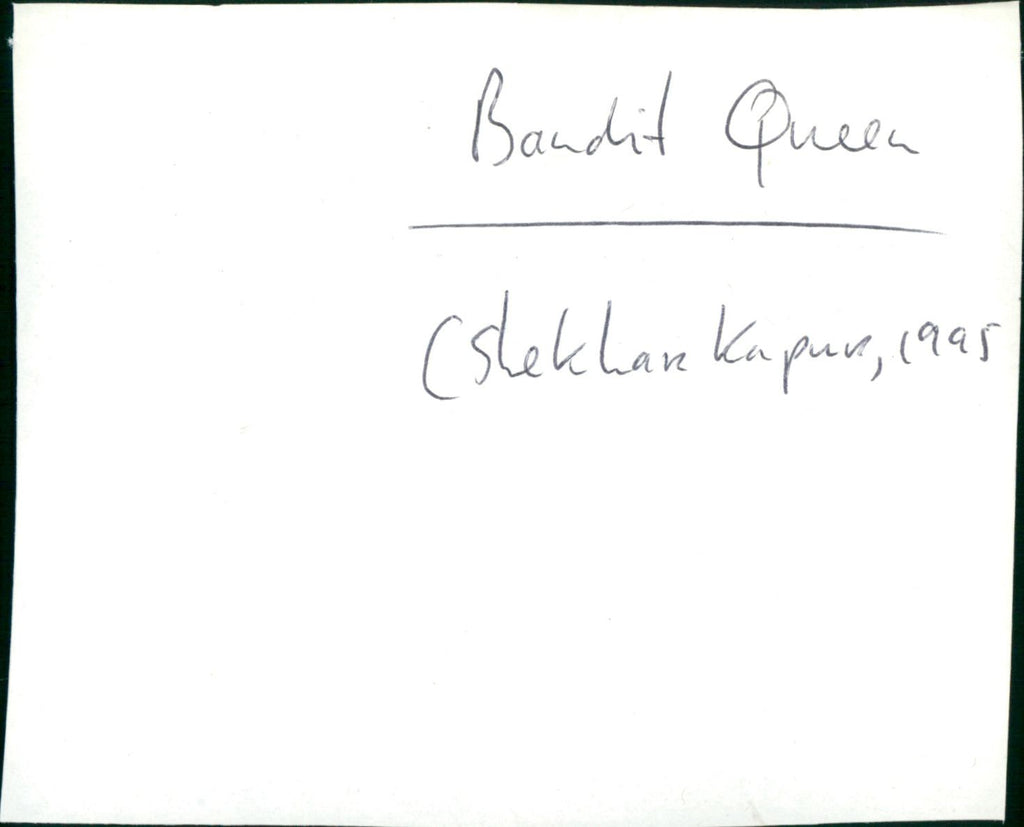 Bandit Queen
(Shekhar Kapur, 1995